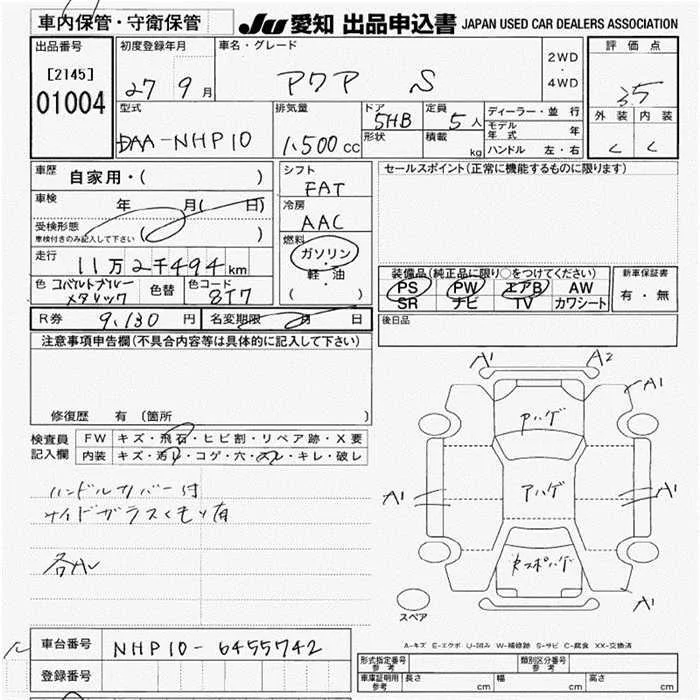 車内保管・守衛保管
JU 愛知 出品申込書 JAPAN USED CAR DEALERS ASSOCIATION
出品番号
[2145]
01004
初度登録年月
27 9月
車名・グレード
アクア S
2WD
・
4WD
評価点
3.5
外装 内装
C C
型式
DAA-NHP10
排気量
1,500 cc
ドア
5HB
形状
定員
5人
積載
kg
ディーラー・並行
モデル年式 年
ハンドル 左・右
車歴
自家用・( )
車検
年 月( 日)
受検形態
車検付きのみ記入して下さい ( )
走行
11万2千494km
色 コバルトブルーメタリック 色替 色コード 8T7
シフト
FAT
冷房
AAC
燃料
ガソリン
・
軽・油
( )
セールスポイント(正常に機能するものに限ります)
装備品(純正品に限り○をつけてください)
PS PW エアB AW
SR ナビ TV カワシート
新車保証書
有・無
後日品
R券 9,130 円 名変期限 月 日
注意事項申告欄(不具合内容等は具体的に記入して下さい)
修復歴 有 (箇所 )
検査員記入欄
FW キズ・飛石・ヒビ割・リペア跡・X要
内装 キズ・汚レ・コゲ・穴・スレ・キレ・破レ
ハンドルカバー付
サイドガラスくもり有
各A
A1 A2
A1
Aハゲ
A1 Aハゲ A1
A1
スペア
A-キズ E-エクボ U-凹み W-補修跡 S-サビ C-腐食 XX-交換済
車台番号 NHP10-6455742
登録番号
型式指定番号 参考
類別区分番号 参考
車庫証明用 参考 長さ cm 幅 cm 高さ cm